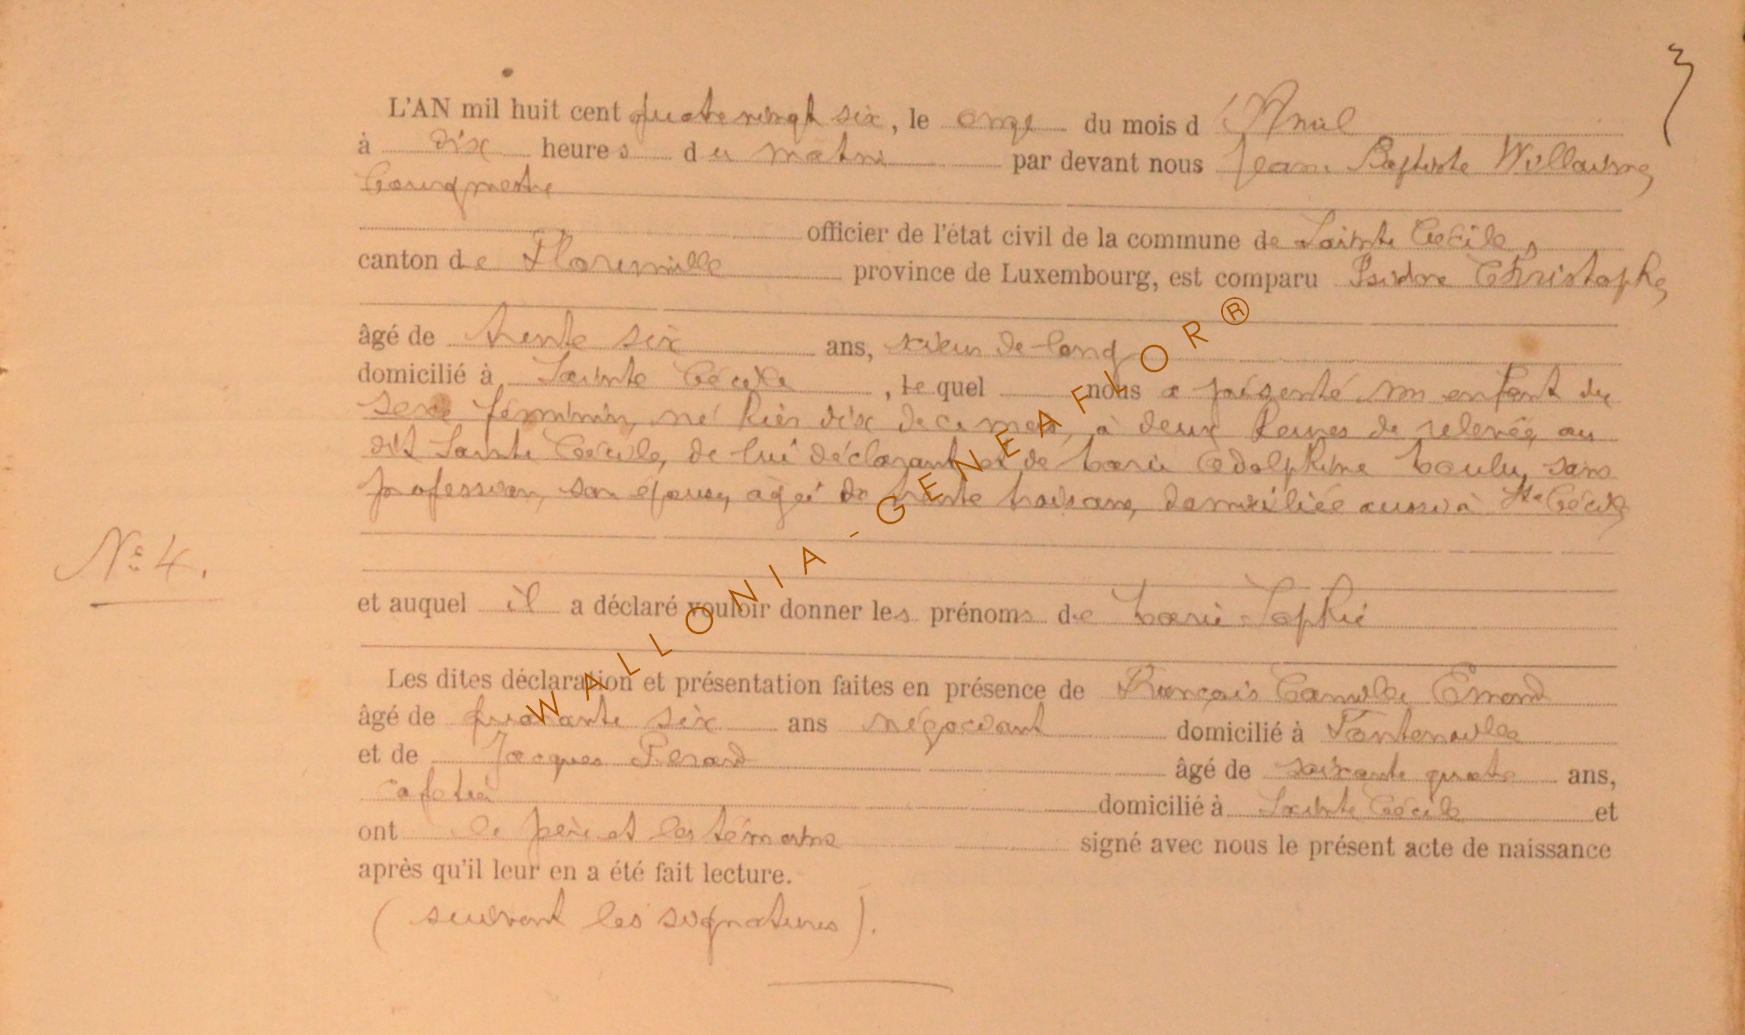 3
L'AN mil huit cent quatre vingt six, le onze du mois d'Avril
à dix heures du matin par devant nous Jean Baptiste Willaume,
bourgmestre
officier de l'état civil de la commune de Sainte Cécile,
canton de Florenville province de Luxembourg, est comparu Isidore Christophe,
âgé de trente six ans, scieur de long
domicilié à Sainte Cécile, lequel nous a présenté un enfant du
sexe féminin, né hier dix de ce mois, à deux heures de relevée, au
dit Sainte Cécile, de lui déclarant et de Marie Adolphine, sans
profession, son épouse, agée de trente trois ans, domiciliée aussi à Ste Cécile,
N° 4.
et auquel il a déclaré vouloir donner les prénoms de Marie Sophie
Les dites déclaration et présentation faites en présence de François Camille Emond
âgé de quarante six ans négociant domicilié à Fontenoille
et de Jacques Pierard âgé de soixante quatre ans,
cafetier domicilié à Sainte Cécile et
ont le père et les témoins signé avec nous le présent acte de naissance
après qu'il leur en a été fait lecture.
(suivent les signatures).
WALLONIA-GENEAFLOR®